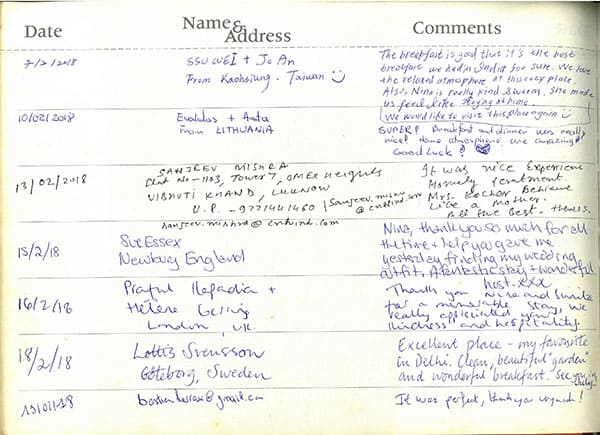 Date Name & Address Comments
7/2/2018
SSU WEI + Jo An
From Kaohsiung. Taiwan
The breakfast is good that it's the best
breakfast we had in India for sure. We love
the relaxed atmosphere at this cozy place.
Also, Nina is really kind & warm. She made
us feel like staying at home.
We would like to visit this place again
10/02/2018
Evaldas + Asta
From LITHUANIA
SUPER! Breakfast and dinner was really
nice! Home atmosphere one amazing!
Good Luck!
13/02/2018
SANJEEV MISHRA
Flat No-1103, Tower 7, OMEX Heights
VIBHUTI KHAND, LUCKNOW
U.P. -
sanjeev.mishra@cnhind.com
It was nice Experience
Homely
Mrs. Kochar Behave
Like a mother.
All the Best.
15/2/18
Sue Essex
Newbury England
Nina, thank you so much for all
the time + help you gave me
yesterday finding my wedding
outfit. A fantastic stay + wonderful
host. xxx
16/2/18
Praful Kapadia +
Hélène
London, UK.
Thank you Nina and Sunil
for a memorable stay, we
really appreciated your
kindness and hospitality.
18/2/18
Lottis Svensson
Göteborg, Sweden
Excellent place - my favourite
in Delhi. Clean, beautiful "garden"
and wonderful breakfast. See you in
It was perfect, thank you very much!